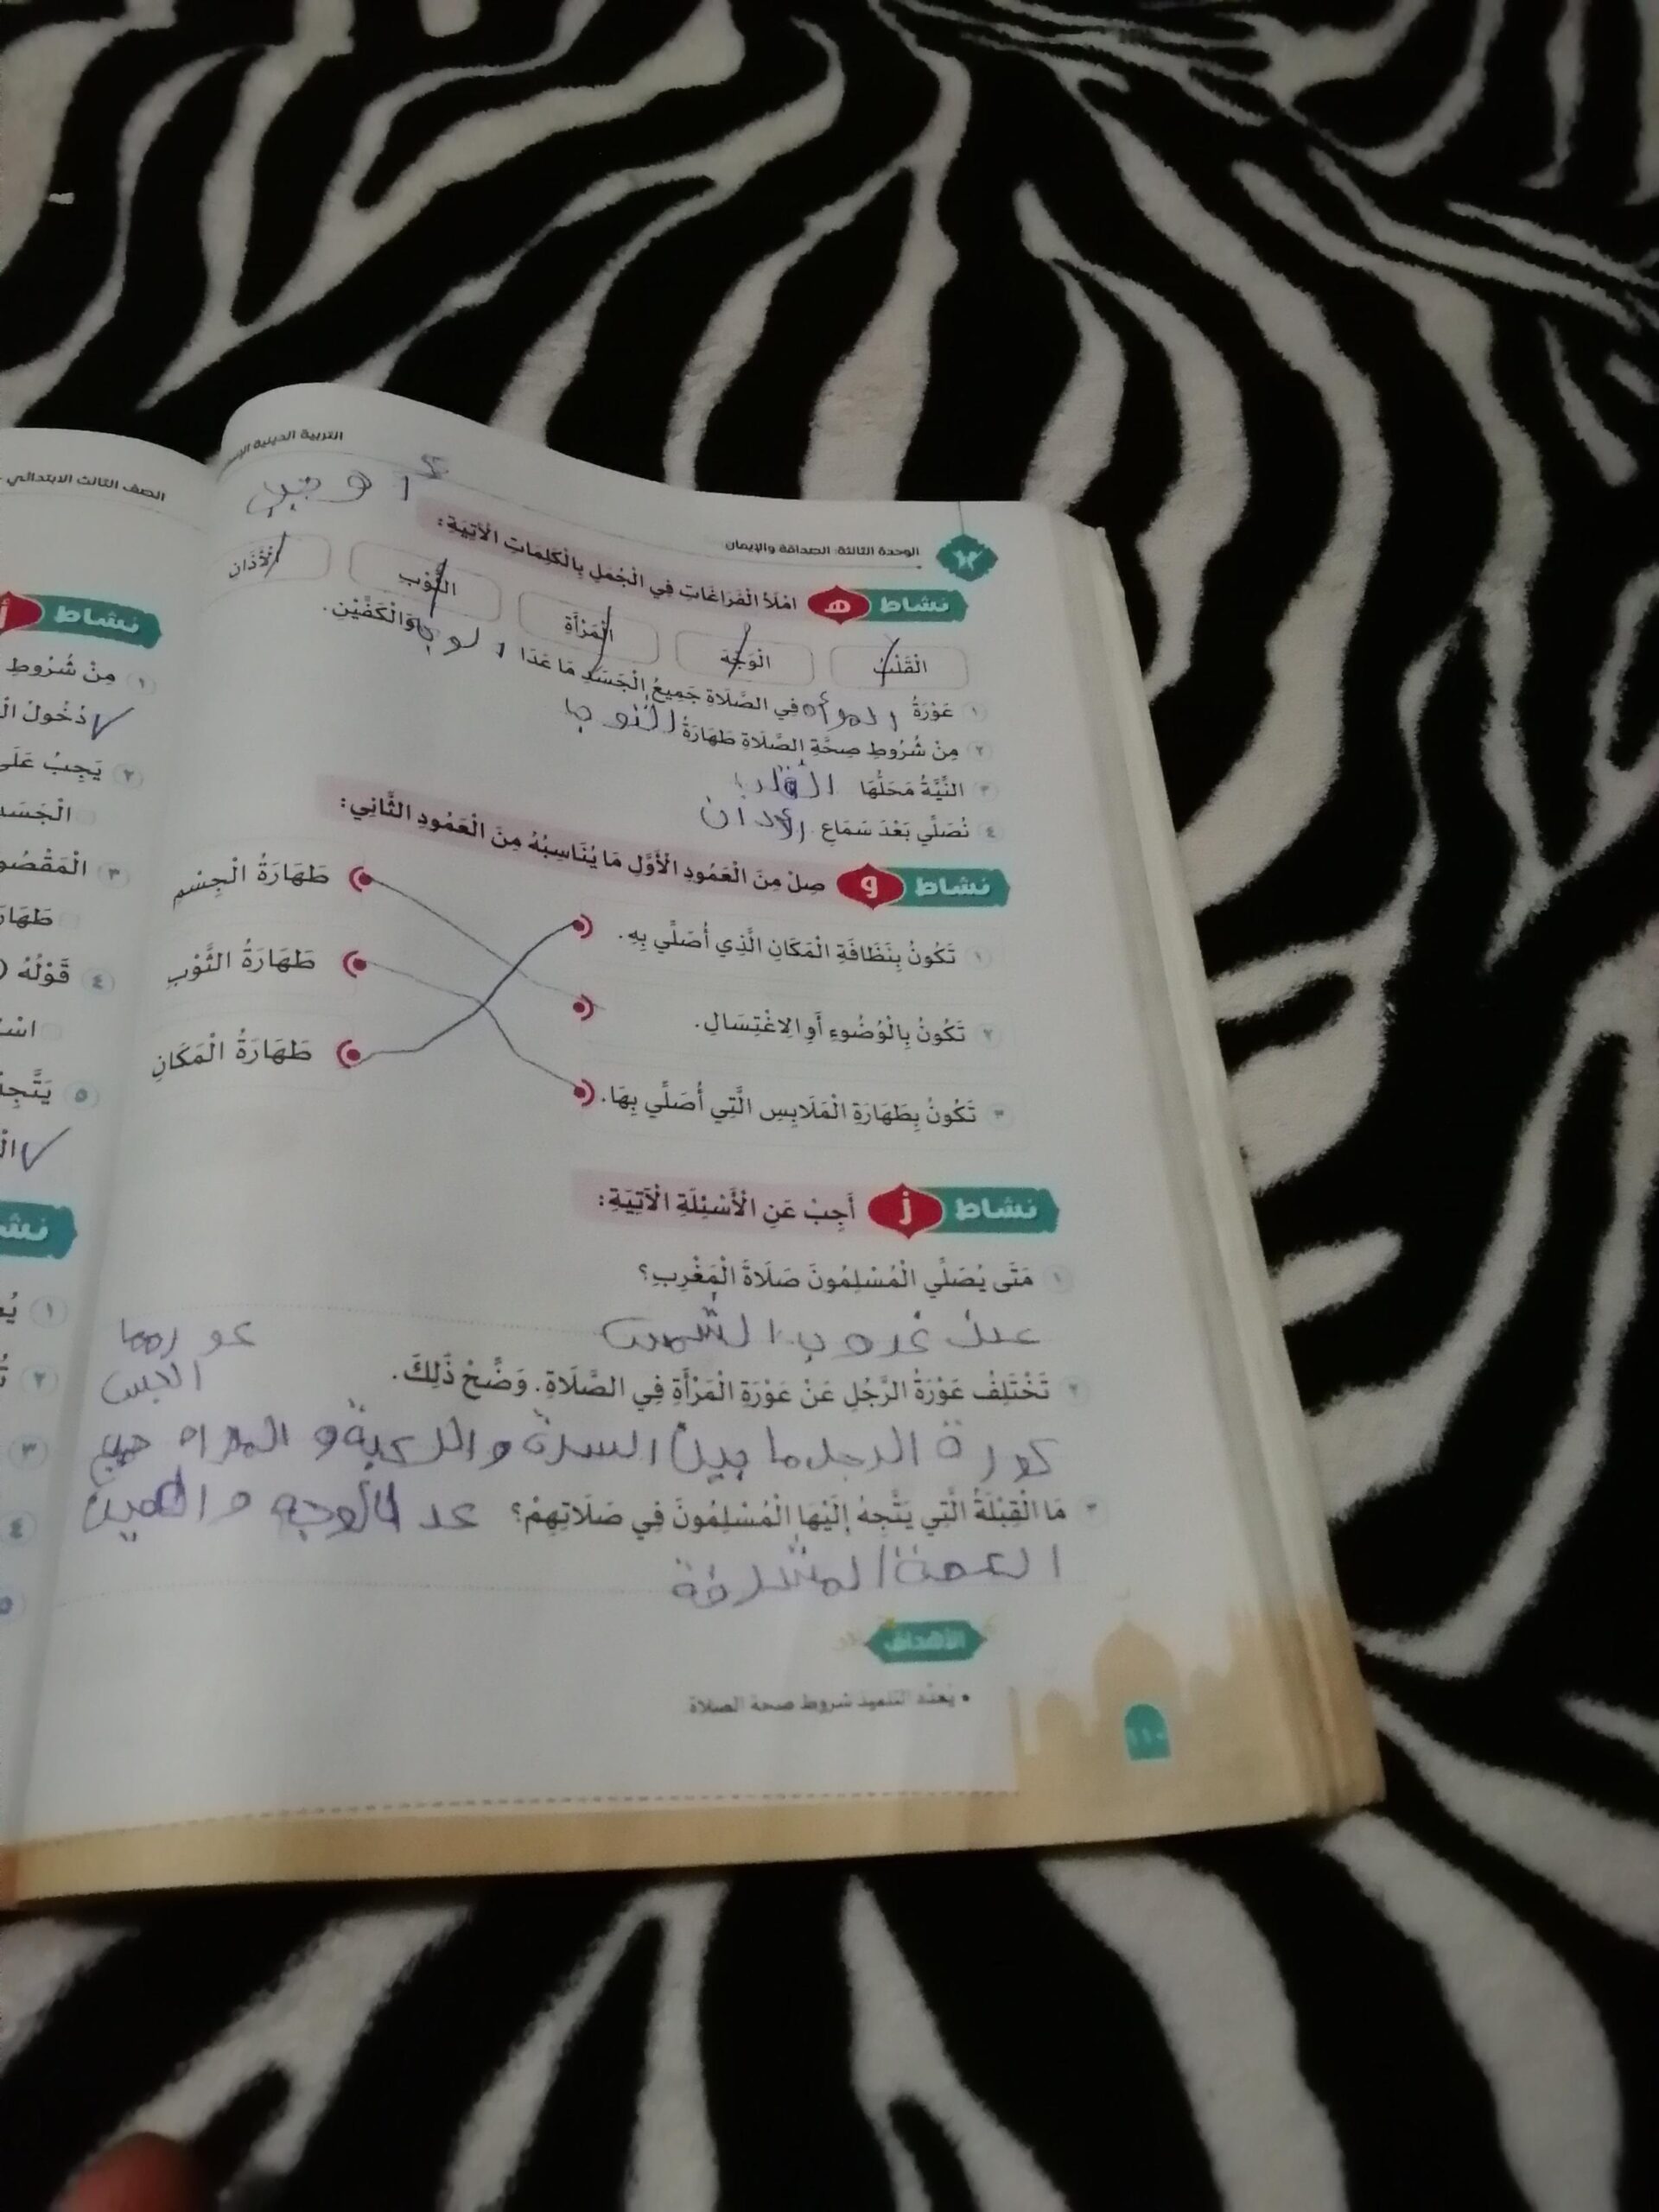 التربية الدينية
الوحدة الثالثة: الصداقة والإيمان
نشاط هـ امْلَأِ الْفَرَاغَاتِ فِي الْجُمَلِ بِالْكَلِمَاتِ الْآتِيَةِ:
الْقَلْبُ الْوَجْهَ الْمَرْأَةِ الثَّوْبِ الْأَذَانِ
١ عَوْرَةُ المرأه فِي الصَّلَاةِ جَمِيعُ الْجَسَدِ مَا عَدَا الوجا وَالْكَفَّيْنِ.
٢ مِنْ شُرُوطِ صِحَّةِ الصَّلَاةِ طَهَارَةُ الثوب
٣ النِّيَّةُ مَحَلُّهَا القلب
٤ نُصَلِّي بَعْدَ سَمَاعِ الأذان
نشاط و صِلْ مِنَ الْعَمُودِ الْأَوَّلِ مَا يُنَاسِبُهُ مِنَ الْعَمُودِ الثَّانِي:
١ تَكُونُ بِنَظَافَةِ الْمَكَانِ الَّذِي أُصَلِّي بِهِ. طَهَارَةُ الْجِسْمِ
٢ تَكُونُ بِالْوُضُوءِ أَوِ الِاغْتِسَالِ. طَهَارَةُ الثَّوْبِ
٣ تَكُونُ بِطَهَارَةِ الْمَلَابِسِ الَّتِي أُصَلِّي بِهَا. طَهَارَةُ الْمَكَانِ
نشاط ز أَجِبْ عَنِ الْأَسْئِلَةِ الْآتِيَةِ:
١ مَتَى يُصَلِّي الْمُسْلِمُونَ صَلَاةَ الْمَغْرِبِ؟
عند غروب الشمس
٢ تَخْتَلِفُ عَوْرَةُ الرَّجُلِ عَنْ عَوْرَةِ الْمَرْأَةِ فِي الصَّلَاةِ. وَضِّحْ ذَلِكَ.
عورة الرجل ما بين السرة والركبة و المراه جميع
٣ مَا الْقِبْلَةُ الَّتِي يَتَّجِهُ إِلَيْهَا الْمُسْلِمُونَ فِي صَلَاتِهِمْ؟
المشرفة
الأهداف
• يُعدِّد التلميذ شروط صحة الصلاة.
١١٠
الصف الثالث الابتدائي
نشاط
١ مِنْ شُرُوطِ
دُخُولُ
٢ يَجِبُ
الْجَسَدِ
٣
٤ قَوْلُهُ
٥
١
٢
٣
٤